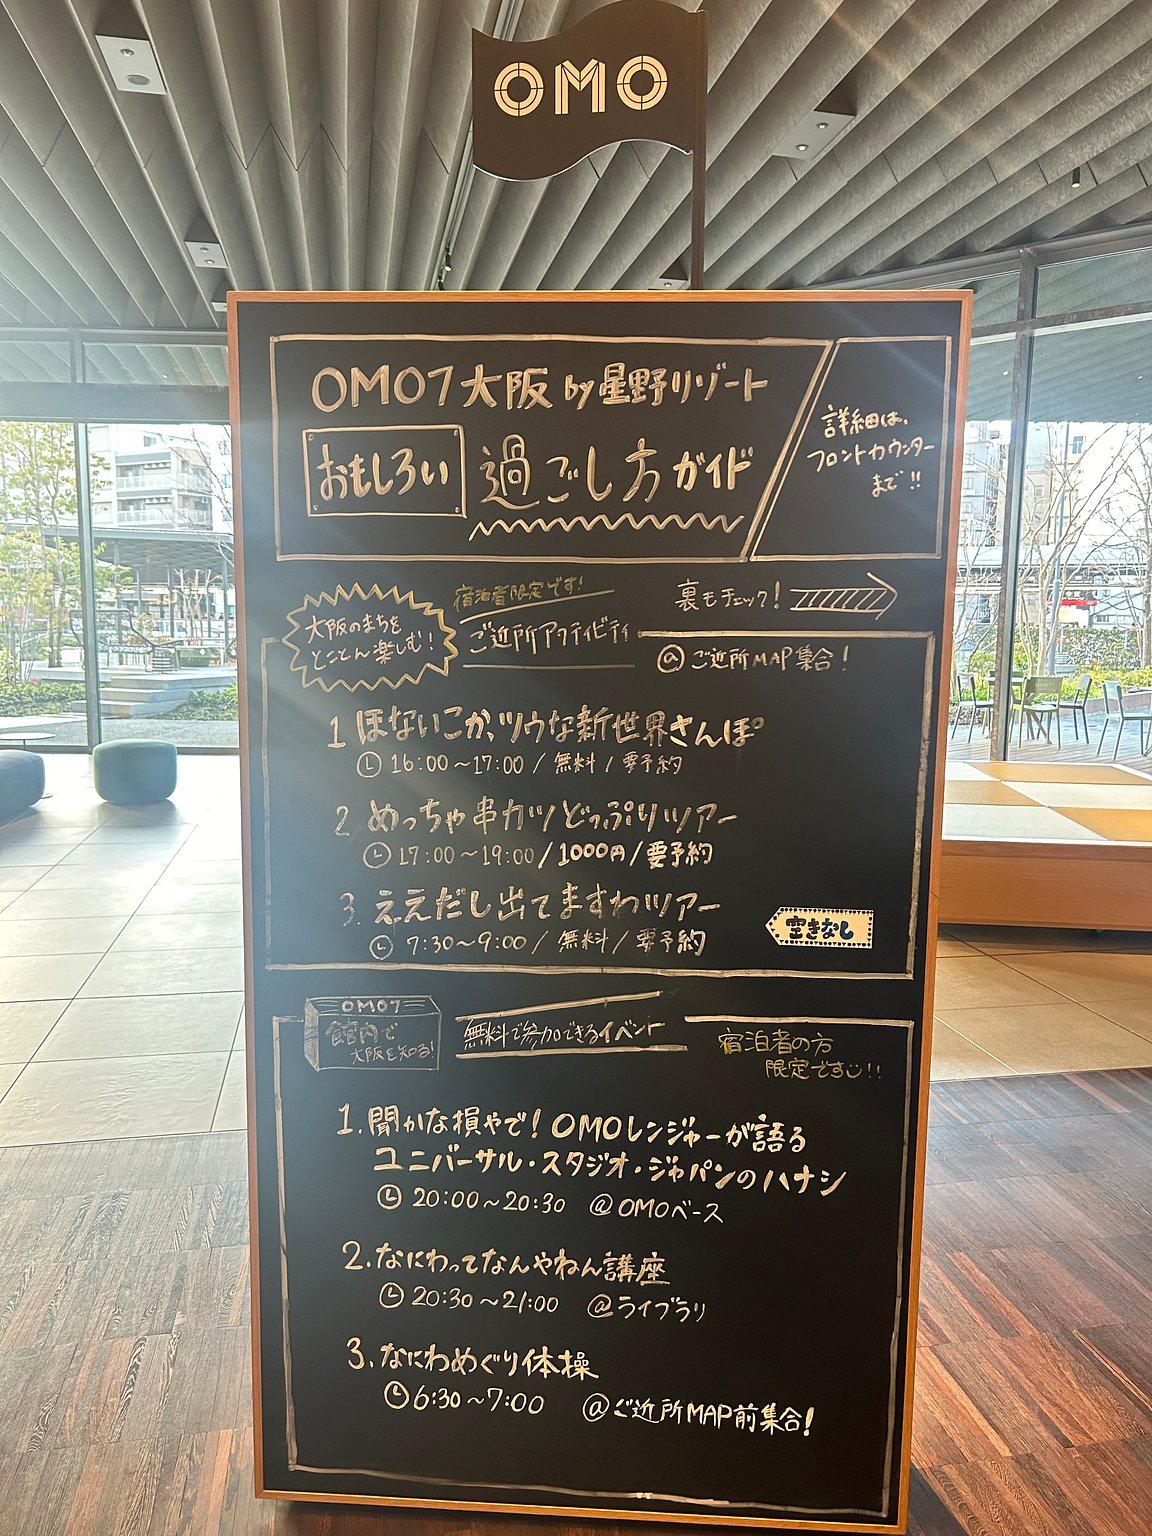 OMO
OMO7大阪 by 星野リゾート
おもしろい 過ごし方ガイド
詳細は、
フロントカウンター
まで!!
大阪のまちを
とことん楽しむ!
宿泊者限定です!
ご近所アクティビティ
裏もチェック!
@ご近所MAP集合!
1 ほないこか、ツウな新世界さんぽ
16:00~17:00 / 無料 / 要予約
2 めっちゃ串カツどっぷりツアー
17:00~19:00 / 1000円 / 要予約
3. ええだし出てますわツアー
7:30~9:00 / 無料 / 要予約
空きなし
OMO7
館内で
大阪を知る!
無料で参加できるイベント
宿泊者の方
限定です!!
1. 聞かな損やで! OMOレンジャーが語る
ユニバーサル・スタジオ・ジャパンのハナシ
20:00~20:30 @OMOベース
2. なにわってなんやねん講座
20:30~21:00 @ライブラリ
3. なにわめぐり体操
6:30~7:00 @ご近所MAP前集合!